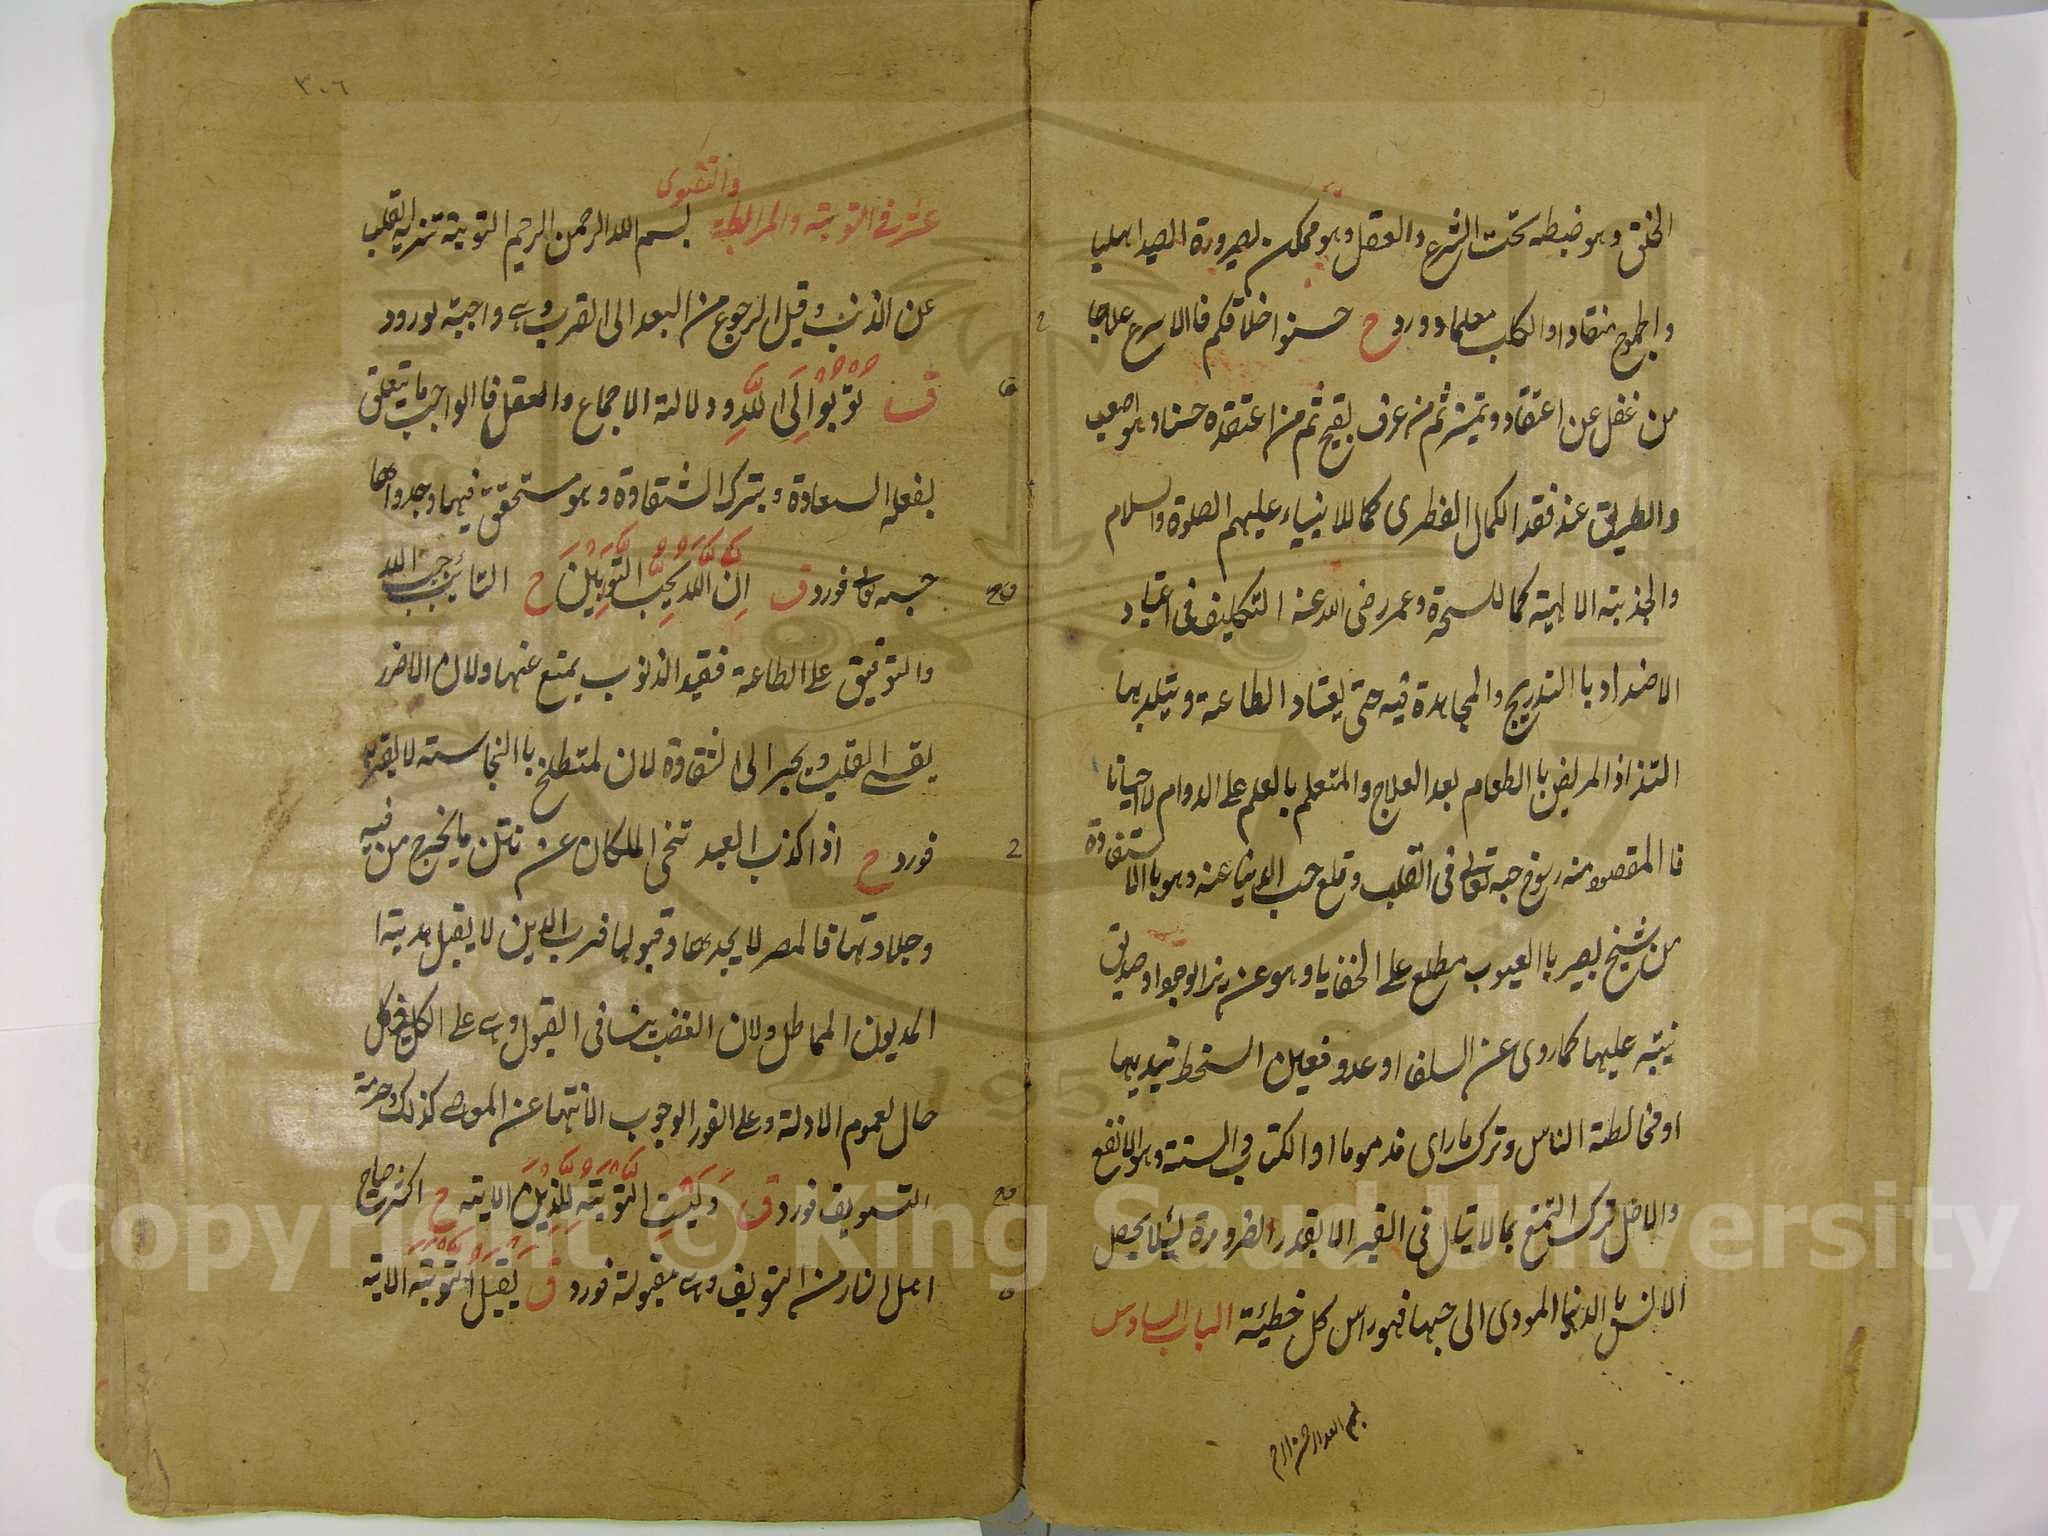 الخلق وهو ضبطه تحت الشرع والعقل وهو ممكن لصيرورة الصيد اهليا
والجموح منقادا والكلب معلما وورد ح حسنوا اخلاقكم فاالاسرع علاجا
من غفل عن اعتقاد وتميز ثم من عرف بقبح ثم من اعتقده حسنا وهو اصعب
والطريق عند فقد الكمال الفطرى كما للانبياء عليهم الصلوة والسلام
والجذبته الالهية كما للسحرة وعمر رضى الله عنه التكليف فى اعتياد
الاضداد باالتدريج والمجاهدة فيه حتى يعتاد الطاعة ويتلذ بها
التذاذ المريض باالطعام بعد العلاج والمتعلم بالعلم على الدوام لا احيانا
فاالمقصود منه رسوخ حبه تعالى فى القلب وقلع حب الدنيا عنه وهو باالاستفادة
من شيخ بصير باالعيوب مطلع على الخفايا وهو عزيز الوجود او صديق
ينبته عليها كما روى عن السلف او عدو فعين السخط تبديها
او مخالطة الناس وترك ما راى مذموما او الكتاب والسنة وهو الانفع
والاصل ترك التمتع بما لا ينال فى القبر الا بقدر الضرورة ليئلا يحصل
الانس باالدنيا المودى الى حبها فهو راس كل خطيئة الباب السادس
بسم الله الرحمن الرحيم
٣٠٦
والتقوى
عشر فى التوبته والمرابطة بسم الله الرحمن الرحيم التوبته تنزيه القلب
عن الذنب وقيل الرجوع من البعد الى القرب وهى واجبته لورود
ق تُوْبُوْا اِلَى اللهِ ودلالة الاجماع والعقل فاالواجب ما يتعلق
بفعله السعادة وبتركه الشقاوة وهو مستحقق فيهما وجدواها
حبه تعالى فورد ق اِنَّ اللهَ يُحِبُّ التَّوَّابِيْنَ ح التائب حبيب الله
والتوفيق على الطاعة فقيد الذنوب يمنع عنها ولان الاضرر
يقسى القلب ويجر الى الشقاوة لان لمتطلخ باالنجاسته لا يقربه
فورد ح اذا كذب العبد تنحى الملكان عن نتن ما يخرج من فيه
وحلاوتها فالمصر لا يجدها وقبولها فرب الدين لا يقبل هديته ا
المديون المماطل ولان الغضب ينافى القبول وهى على الكل فى كل
حال لعموم الادلة وعلى الفور لوجوب الانتها عن المعصى كذلك وحرمة
التسويف فورد ق وَلَيْسَتِ التَّوْبَتهُ لِلَّذِيْنَ الايته ح اكثر صياح
اهل النار من التسويف وهى مقبولة فورد ق يَقْبَلُ التَّوْبَتهَ الايته